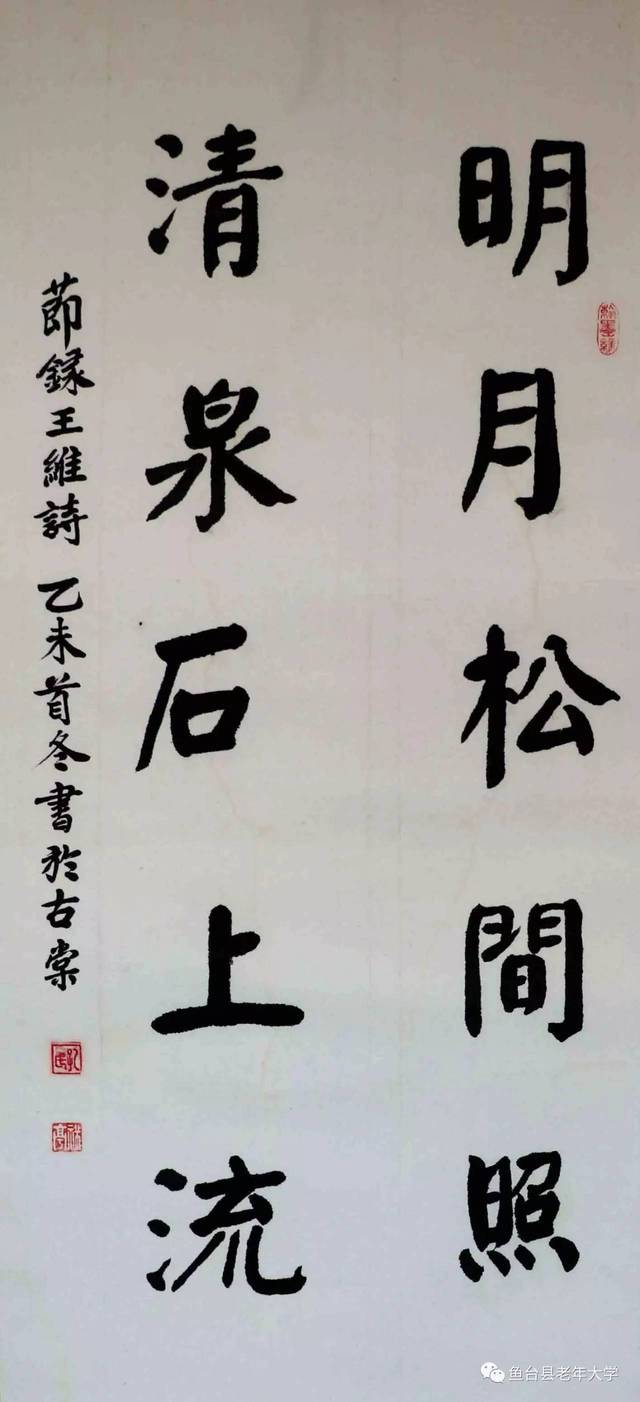 明月松間照
清泉石上流
節錄王維詩 乙未首冬書於古棠
鱼台县老年大学